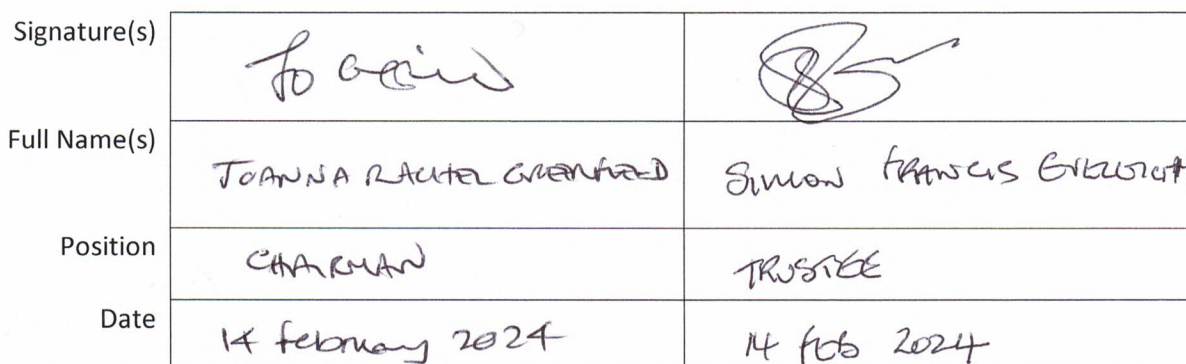 Signature(s)
Full Name(s) JOANNA RACHEL GREENFIELD SIMON FRANCIS
Position CHAIRMAN TRUSTEE
Date 14 February 2024 14 Feb 2024